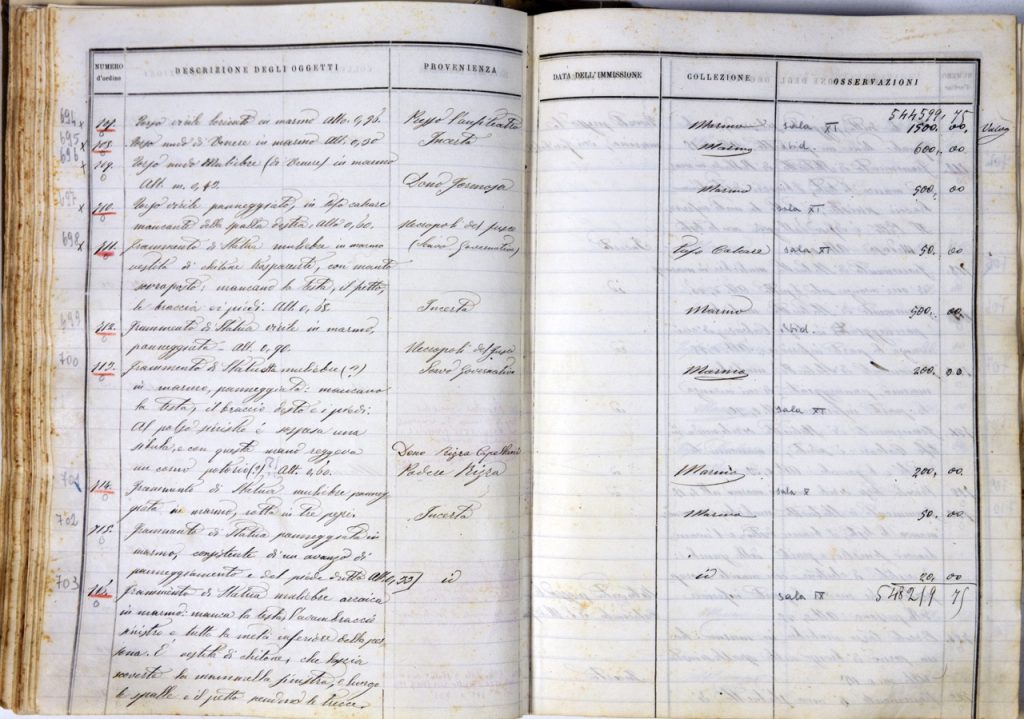 NUMERO d'ordine DESCRIZIONE DEGLI OGGETTI PROVENIENZA DATA DELL'IMMISSIONE COLLEZIONE OSSERVAZIONI
544599, 75
694 Torso virile loricato in marmo Alto 0,96. Pozzo Anfiteatro Marmo sala XI 1500, 00,
695 Torso nudo di Venere in marmo Alt. 0,30 Incerta Marmo Vid. 600, 00
696 709. Torso nudo Muliebre (di Venere) in marmo
Alt. m. 0,42. Dono Marmo 500, 00
697 710. Torso virile panneggiato, in tufo calcare sala XI
mancante della spalla destra, Alto 0,60. Necropoli del fusco
698 711. Frammento di Statua muliebre in marmo (Scavo Governativo) Tufo Calcare sala XI 50. 00
vestita di chitone trasparente, con manto
sovrapposto; mancano la testa, il petto,
le braccia ei piedi. Alt. 0, 68. Incerta Marmo 500, 00
699 712. Frammento di Statua virile in marmo, Vid.
panneggiata. Alt. 0,90. Necropoli del fusco
700 713. Frammento di Statua muliebre (?) Scavo Governativo Marmo 200, 00
in marmo, panneggiata: mancano
la testa, il braccio destro e i piedi. sala XI
Al polso sinistro è sospesa una
situla, e con questa mano reggeva Dono
un corno potorio(?) Alt. 0,60. Marmo 200, 00
701 714. Frammento di Statua muliebre panneg sala X
giata in marmo, rotta in tre pezzi. Incerta Marmo 50. 00
702 715. Frammento di Statua panneggiata in
marmo, consistente di un avanzo di
panneggiamento e del piede dritto Alt 0,33 id id 20, 00
703 716. Frammento di Statua muliebre arcaica sala IX 548219 75
in marmo: manca la testa, l'avambraccio
sinistro e tutta la metà inferiore della per
sona. È vestita di chitone, che lascia
scoverta la mammella sinistra, e lungo
le spalle e il petto pendono le trecce.